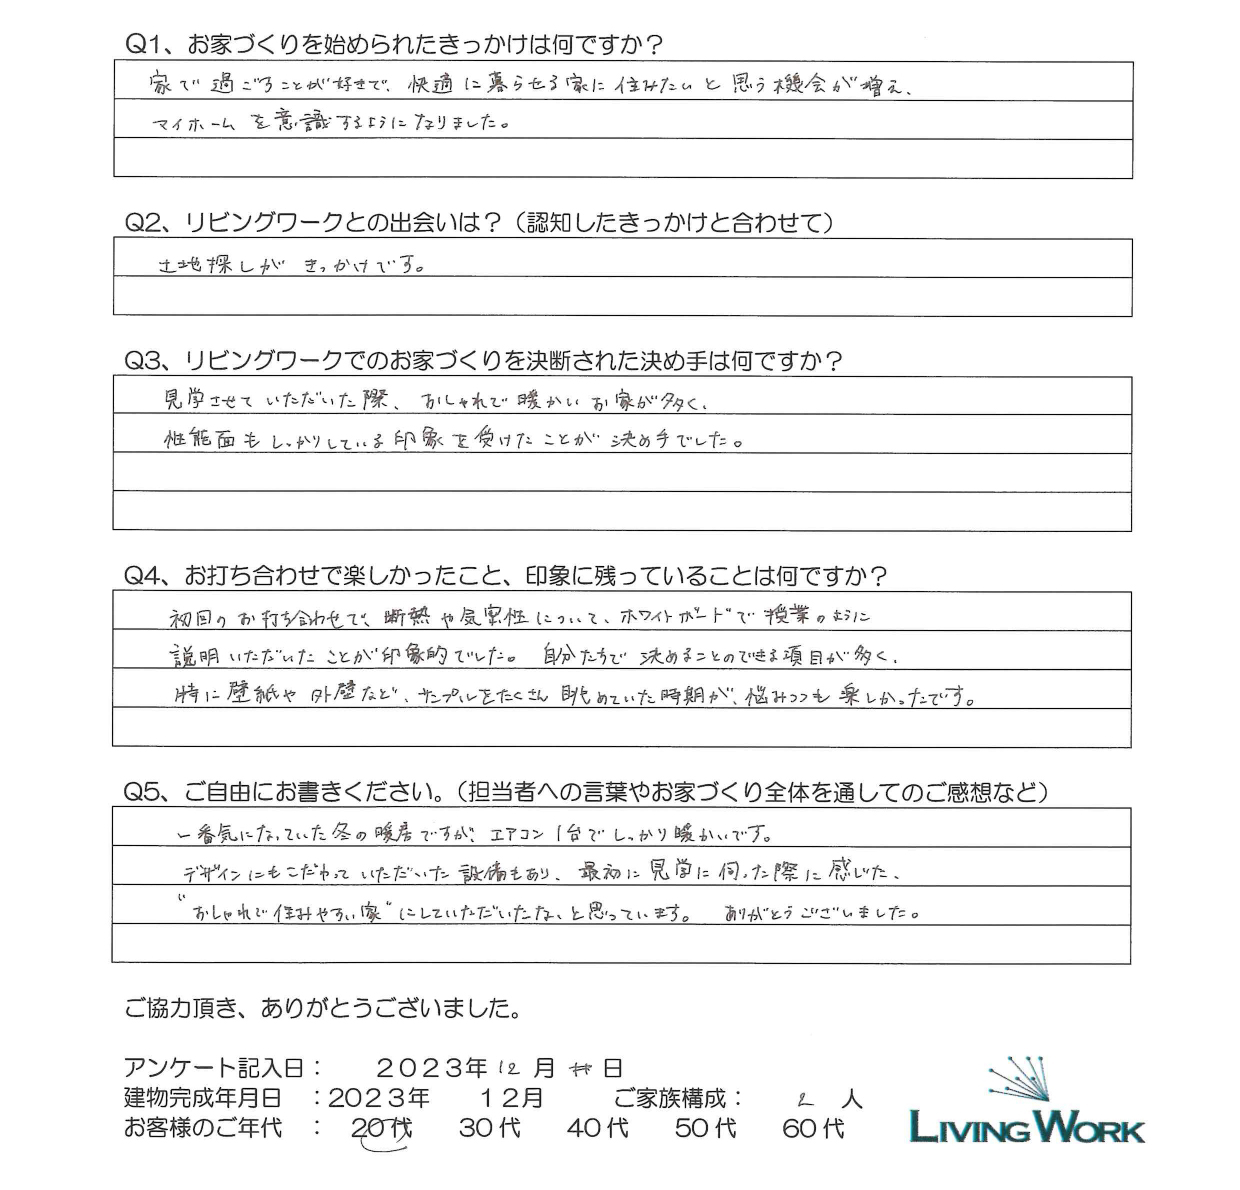 Q1、お家づくりを始められたきっかけは何ですか？
家で過ごすことが好きで、快適に暮らせる家に住みたいと思う機会が増え、
マイホームを意識するようになりました。
Q2、リビングワークとの出会いは？（認知したきっかけと合わせて）
土地探しがきっかけです。
Q3、リビングワークでのお家づくりを決断された決め手は何ですか？
見学させていただいた際、おしゃれで暖かいお家が多く、
性能面もしっかりしている印象を受けたことが決め手でした。
Q4、お打ち合わせで楽しかったこと、印象に残っていることは何ですか？
初回のお打ち合わせで、断熱や気密性について、ホワイトボードで授業のように
説明いただいたことが印象的でした。自分たちで決めることのできる項目が多く、
特に壁紙や外壁など、サンプルをたくさん眺めていた時期が、悩みつつも楽しかったです。
Q5、ご自由にお書きください。（担当者への言葉やお家づくり全体を通してのご感想など）
一番気になっていた冬の暖房ですが、エアコン1台でしっかり暖かいです。
デザインにもこだわっていただいた設備もあり、最初に見学に伺った際に感じた、
"おしゃれで住みやすい家"にしていただいたな、と思っています。 ありがとうございました。
ご協力頂き、ありがとうございました。
アンケート記入日： 2023年 12 月 日
建物完成年月日 ：2023年 12月 ご家族構成： 2 人
お客様のご年代 ： 20代 30代 40代 50代 60代
LIVING WORK